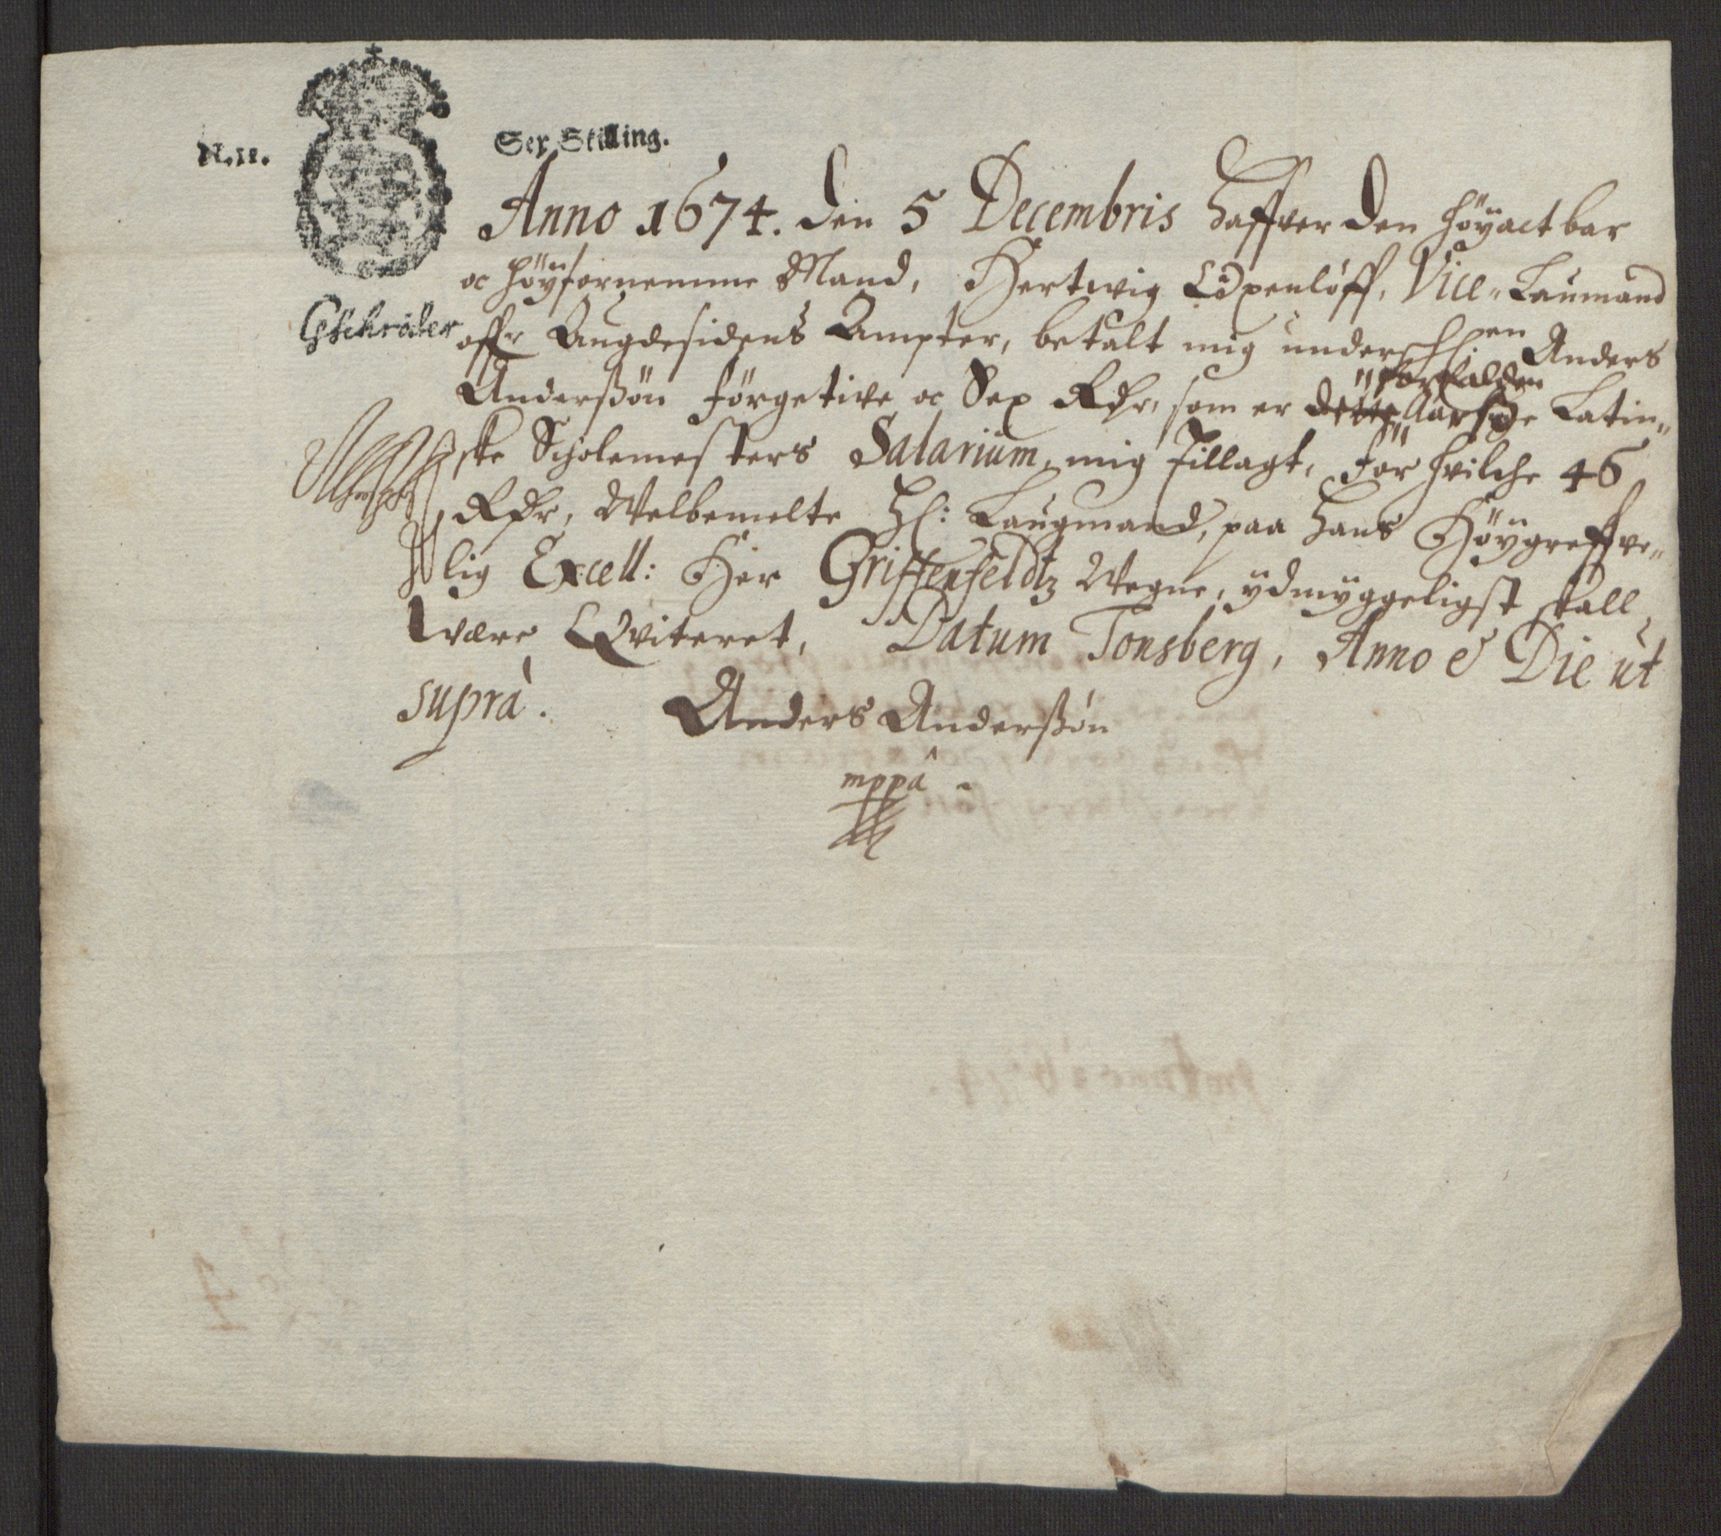 N. 11.
Sex Skilling.
Anno 1674. den 5 Decembris haffver den höyactbar
oc höyfornemme Mand, Hertwig Oxenlöff, Vice-Laumand
offr Augdesidens Ampter, betalt mig underschhen Anders
Anderßön förgetive oc Sex Rdr, som er forfalden
dette Aars Latin-
ske Scholemesters Salarium, mig tillagt, for hvilche 46
Rdr, Welbemelte Hl: Laugmand, paa hans Höygreffve-
lig Excell: Her Griffenfeldtz Wegne, ydmyggeligst skall
være Qviteret, Datum Tonsberg, Anno & Die ut
suprà.
Anders Anderßön
mppâ
GSchröder